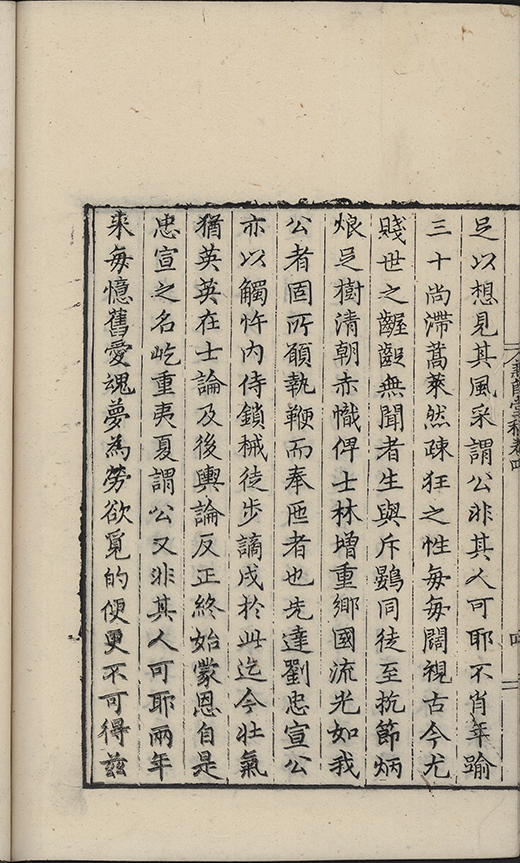 足以想見其風采謂公非其人可耶不肖年踰
三十尚滯蒿萊然疎狂之性每每闊視古今尤
賤世之齷齪無聞者生與斥鷃同徒至抗節炳
烺足樹清朝赤幟俾士林增重鄉國流光如我
公者固所願執鞭而奉匜者也先達劉忠宣公
亦以觸忤內侍鎖械徒步謫戍於此迄今壯氣
猶英英在士論及後輿論反正終始蒙恩自是
忠宣之名屹重夷夏謂公又非其人可耶兩年
來每憶舊愛魂夢為勞欲覓的便更不可得茲